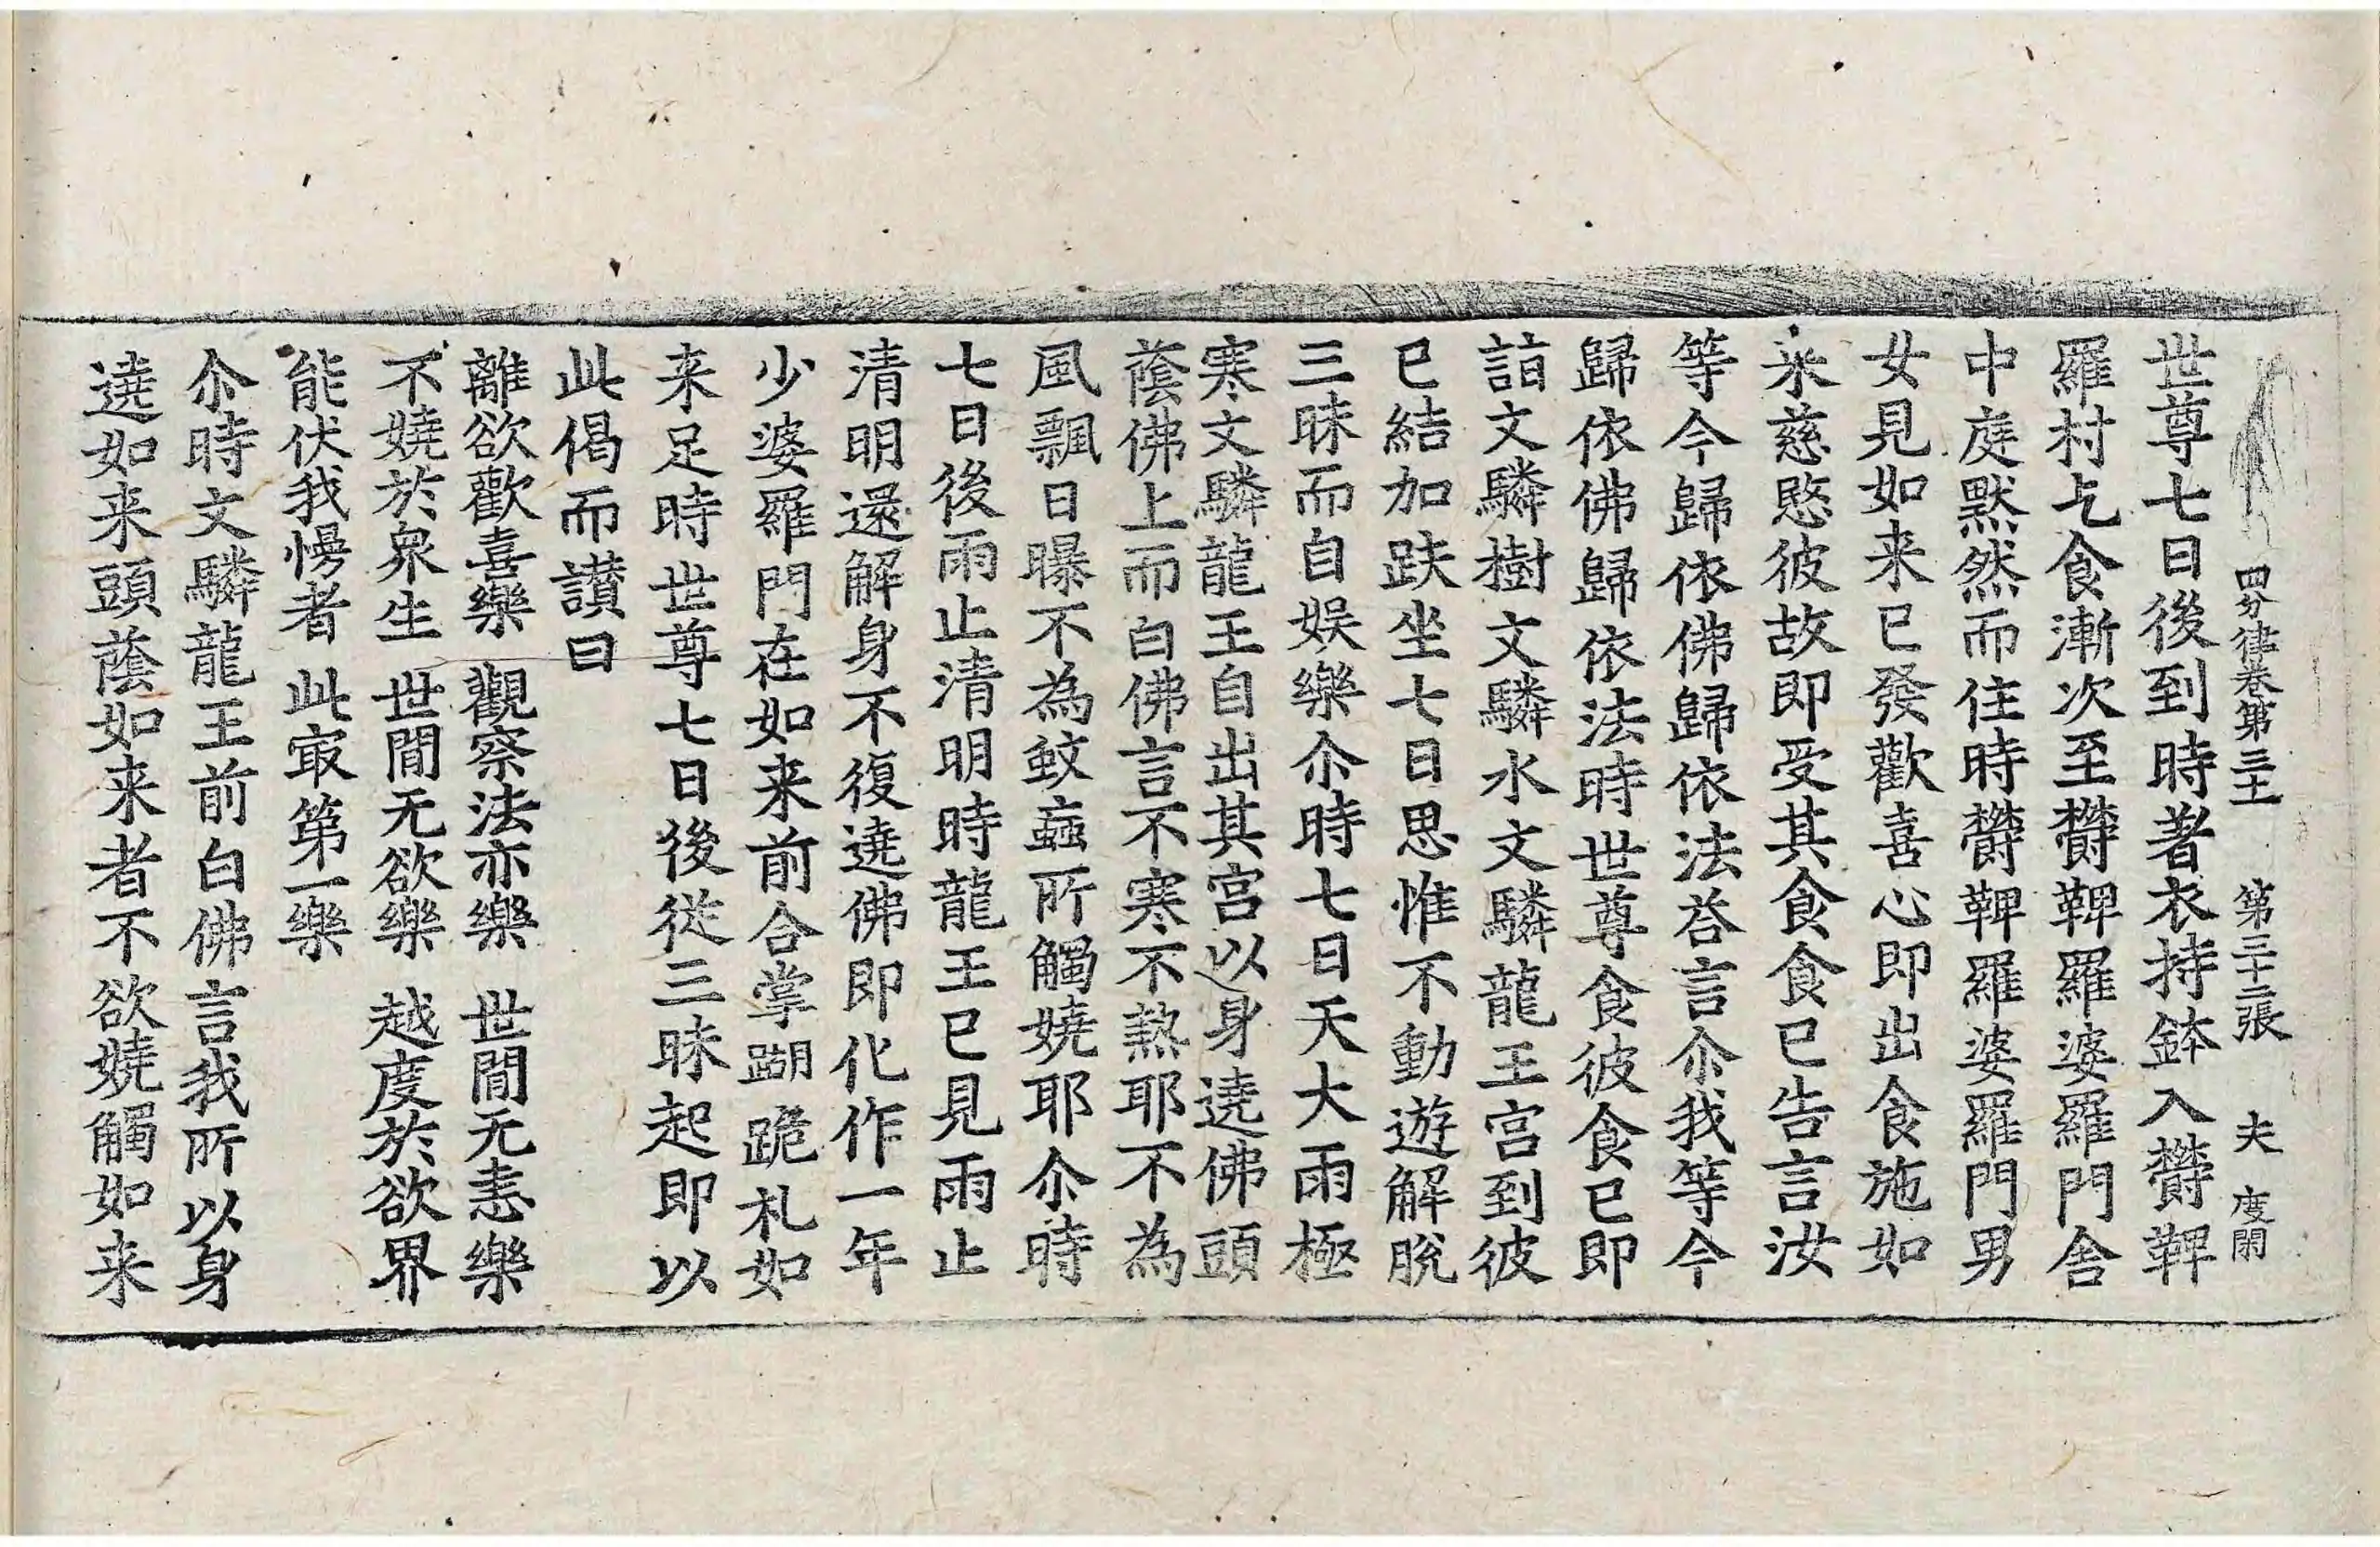 四分律卷第三十一 第三十二張 夫 度閑
世尊七日後到時著衣持鉢入欝鞞
羅村乞食漸次至欝鞞羅婆羅門舍
中庭默然而住時欝鞞羅婆羅門男
女見如来已發歡喜心即出食施如
来慈愍彼故即受其食食已告言汝
等今歸依佛歸依法荅言尒我等今
歸依佛歸依法時世尊食彼食已即
詣文驎樹文驎水文驎龍王宮到彼
已結加趺坐七日思惟不動遊解脫
三昧而自娛樂尒時七日天大雨極
寒文驎龍王自出其宮以身遶佛頭
蔭佛上而白佛言不寒不熱耶不為
風飄日曝不為蚊蝱所觸嬈耶尒時
七日後雨止清明時龍王已見雨止
清明還解身不復遶佛即化作一年
少婆羅門在如来前合掌䠒跪礼如
来足時世尊七日後從三昧起即以
此偈而讃曰
離欲歡喜樂 觀察法亦樂 世間无恚樂
不嬈於衆生 世間无欲樂 越度於欲界
能伏我慢者 此冣第一樂
尒時文驎龍王前白佛言我所以身
遶如来頭蔭如来者不欲嬈觸如来